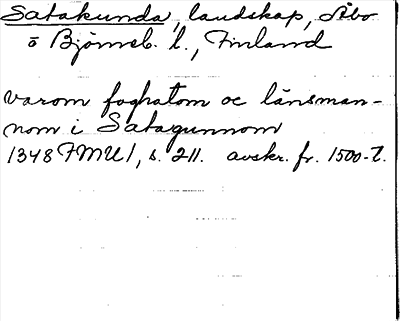 Satakunda, landskap, Åbo
o Björneb. l., Finland
varom foghatom oc länsman-
nom i Satagunnom
1348 FMU 1, s. 211. avskr. fr. 1500-t.